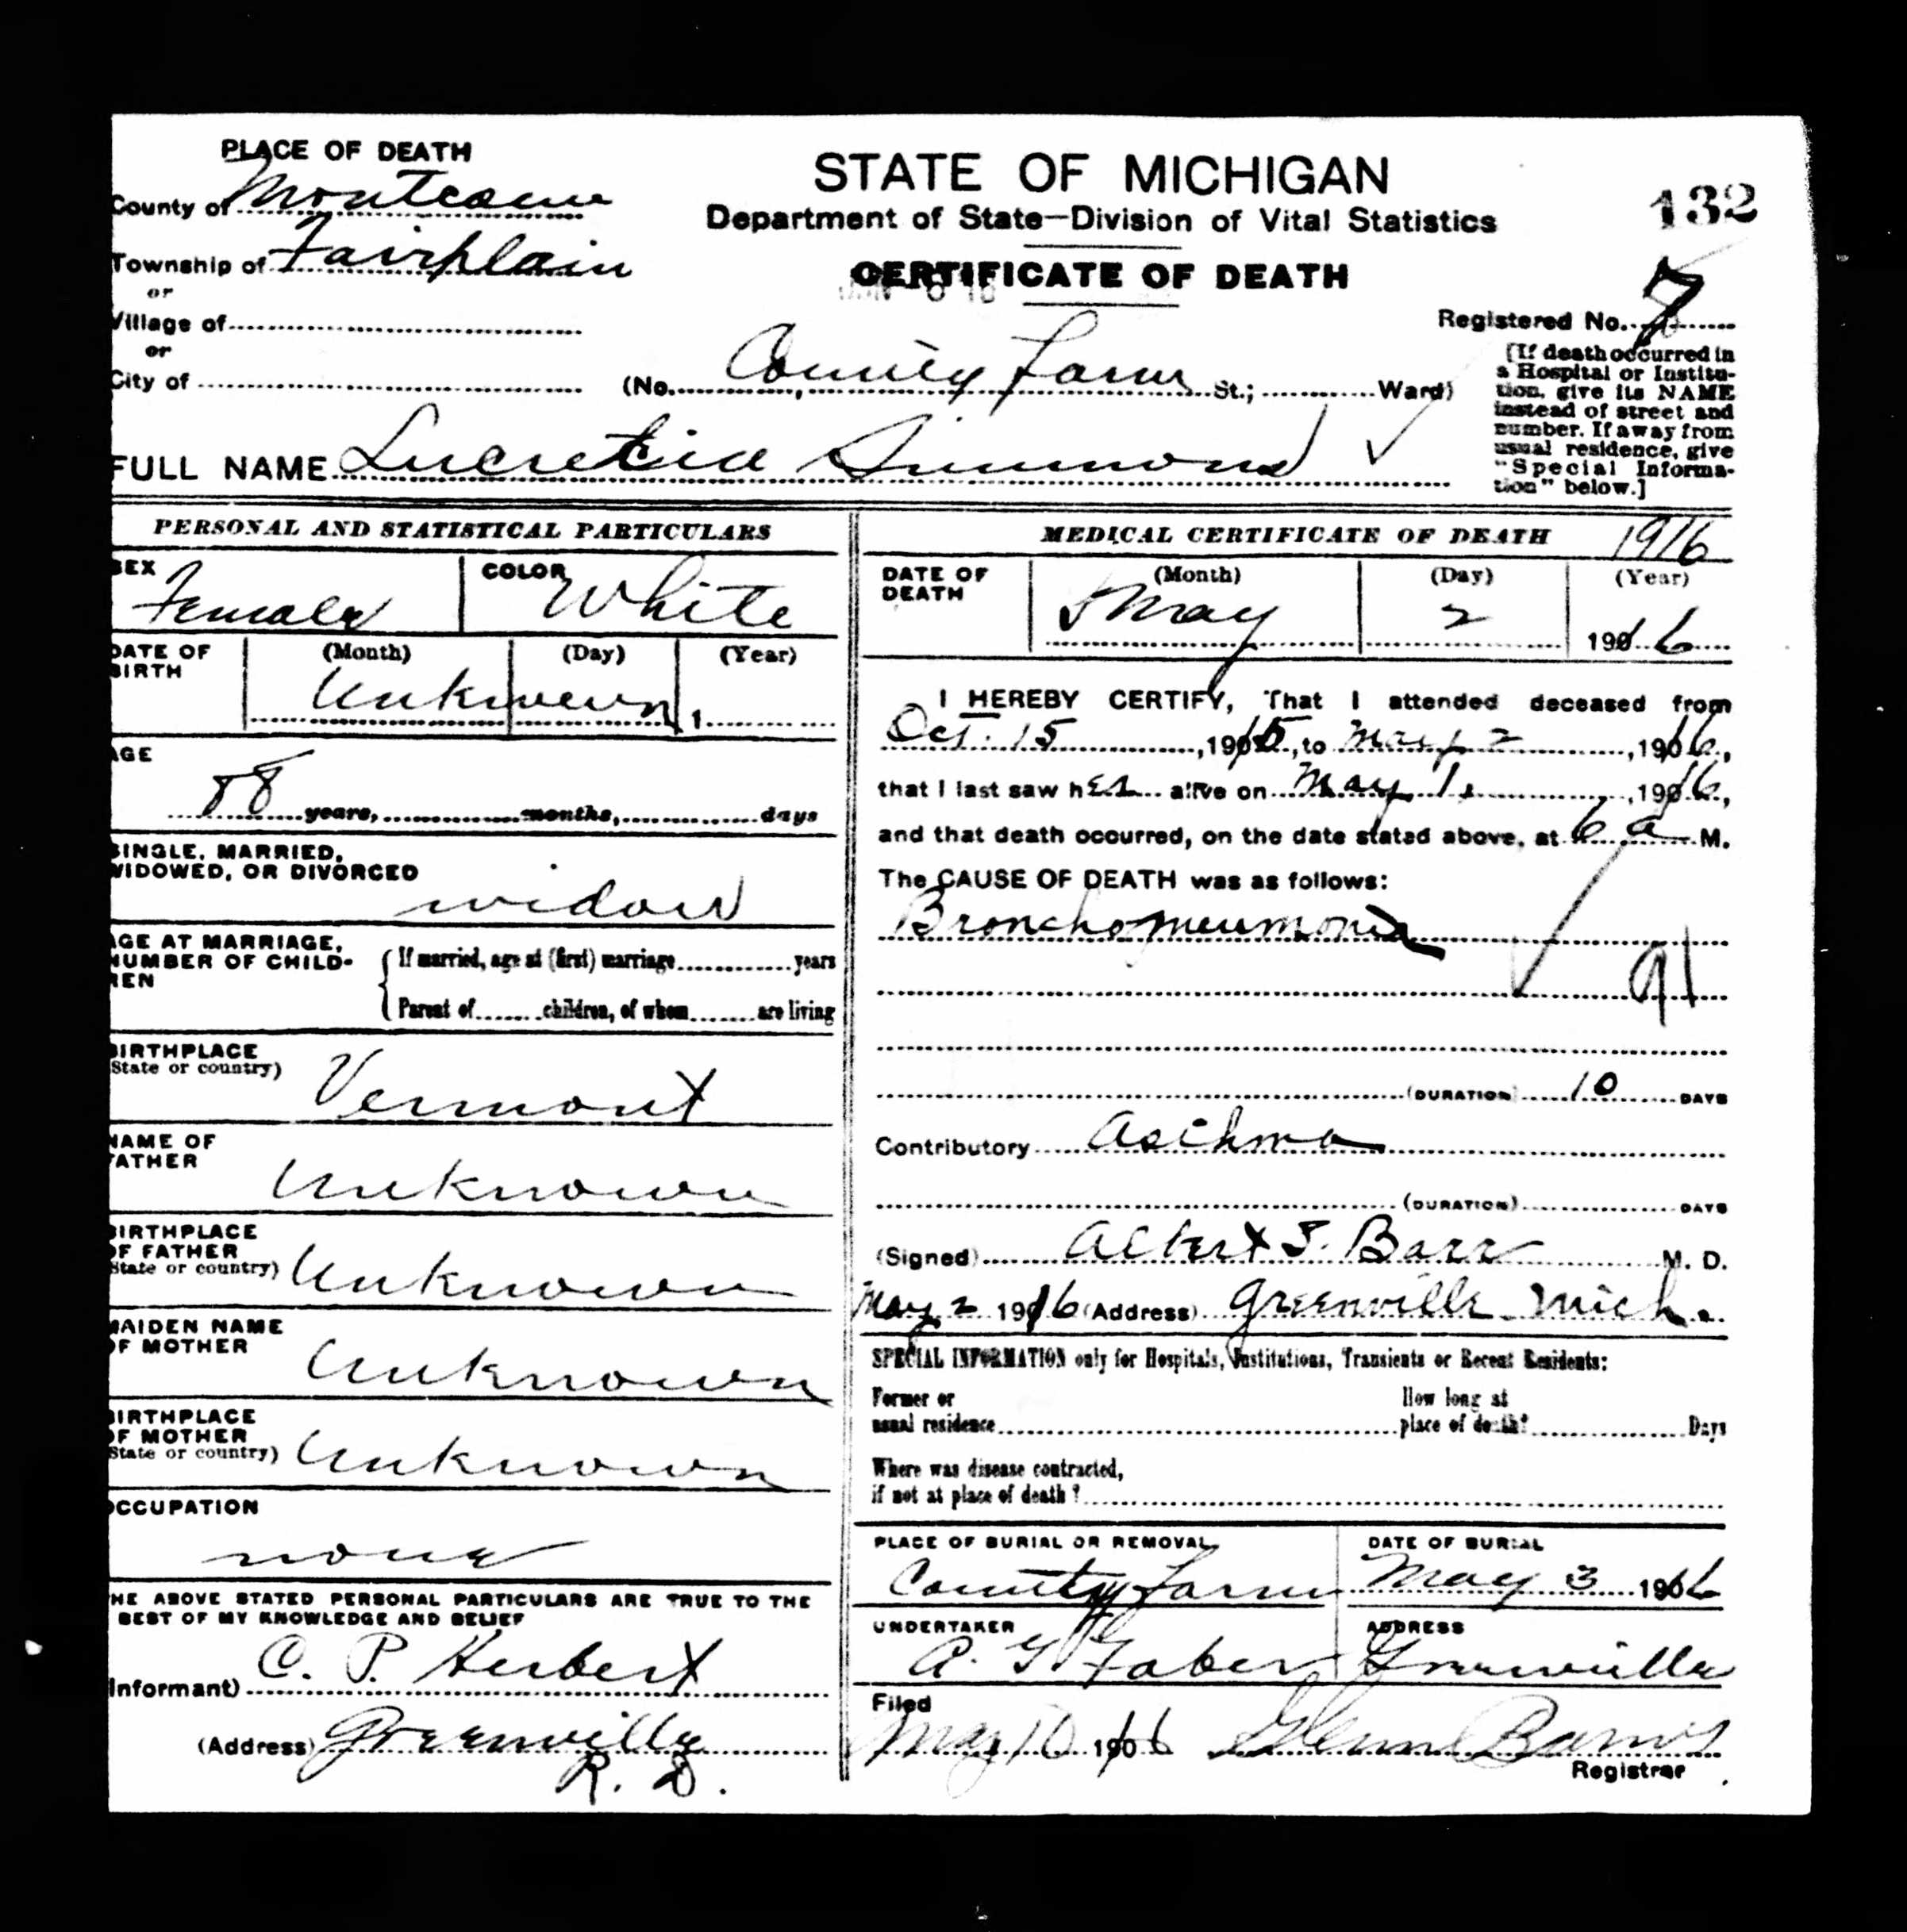 PLACE OF DEATH
County of Montcalm
Township of Fairplain
or
Village of
or
City of
STATE OF MICHIGAN
Department of State—Division of Vital Statistics
CERTIFICATE OF DEATH
132
Registered No. 7
(No. County Farm St.; Ward)
[If death occurred in
a Hospital or Institu-
tion, give its NAME
instead of street and
number. If away from
usual residence, give
"Special Informa-
tion" below.]
FULL NAME Lucretia Simmons
PERSONAL AND STATISTICAL PARTICULARS
SEX Female
COLOR White
DATE OF BIRTH (Month) (Day) (Year)
Unknown 1
AGE
88 years, months, days
SINGLE, MARRIED,
WIDOWED, OR DIVORCED
widow
AGE AT MARRIAGE,
NUMBER OF CHILD-
REN
If married, age at (first) marriage years
Parent of children, of whom are living
BIRTHPLACE
(State or country)
Vermont
NAME OF
FATHER
Unknown
BIRTHPLACE
OF FATHER
(State or country) Unknown
MAIDEN NAME
OF MOTHER
Unknown
BIRTHPLACE
OF MOTHER
(State or country) Unknown
OCCUPATION
none
THE ABOVE STATED PERSONAL PARTICULARS ARE TRUE TO THE
BEST OF MY KNOWLEDGE AND BELIEF
(Informant) C. P. Herbert
(Address) Greenville
R. D.
MEDICAL CERTIFICATE OF DEATH 1916
DATE OF DEATH (Month) (Day) (Year)
May 2 1916
I HEREBY CERTIFY, That I attended deceased from
Oct. 15, 1915, to May 2, 1916,
that I last saw her alive on May 1, 1916,
and that death occurred, on the date stated above, at 6 a M.
The CAUSE OF DEATH was as follows:
Bronchopneumonia
91
(DURATION) 10 DAYS
Contributory Asthma
(DURATION) DAYS
(Signed) Albert S. Barr M. D.
May 2 1916 (Address) Greenville Mich.
SPECIAL INFORMATION only for Hospitals, Institutions, Transients or Recent Residents:
Former or
usual residence
How long at
place of death? Days
Where was disease contracted,
if not at place of death?
PLACE OF BURIAL OR REMOVAL
County Farm
DATE OF BURIAL
May 3 1916
UNDERTAKER
A. G. Faber
ADDRESS
Greenville
Filed
May 10 1916 Glenn Barns
Registrar